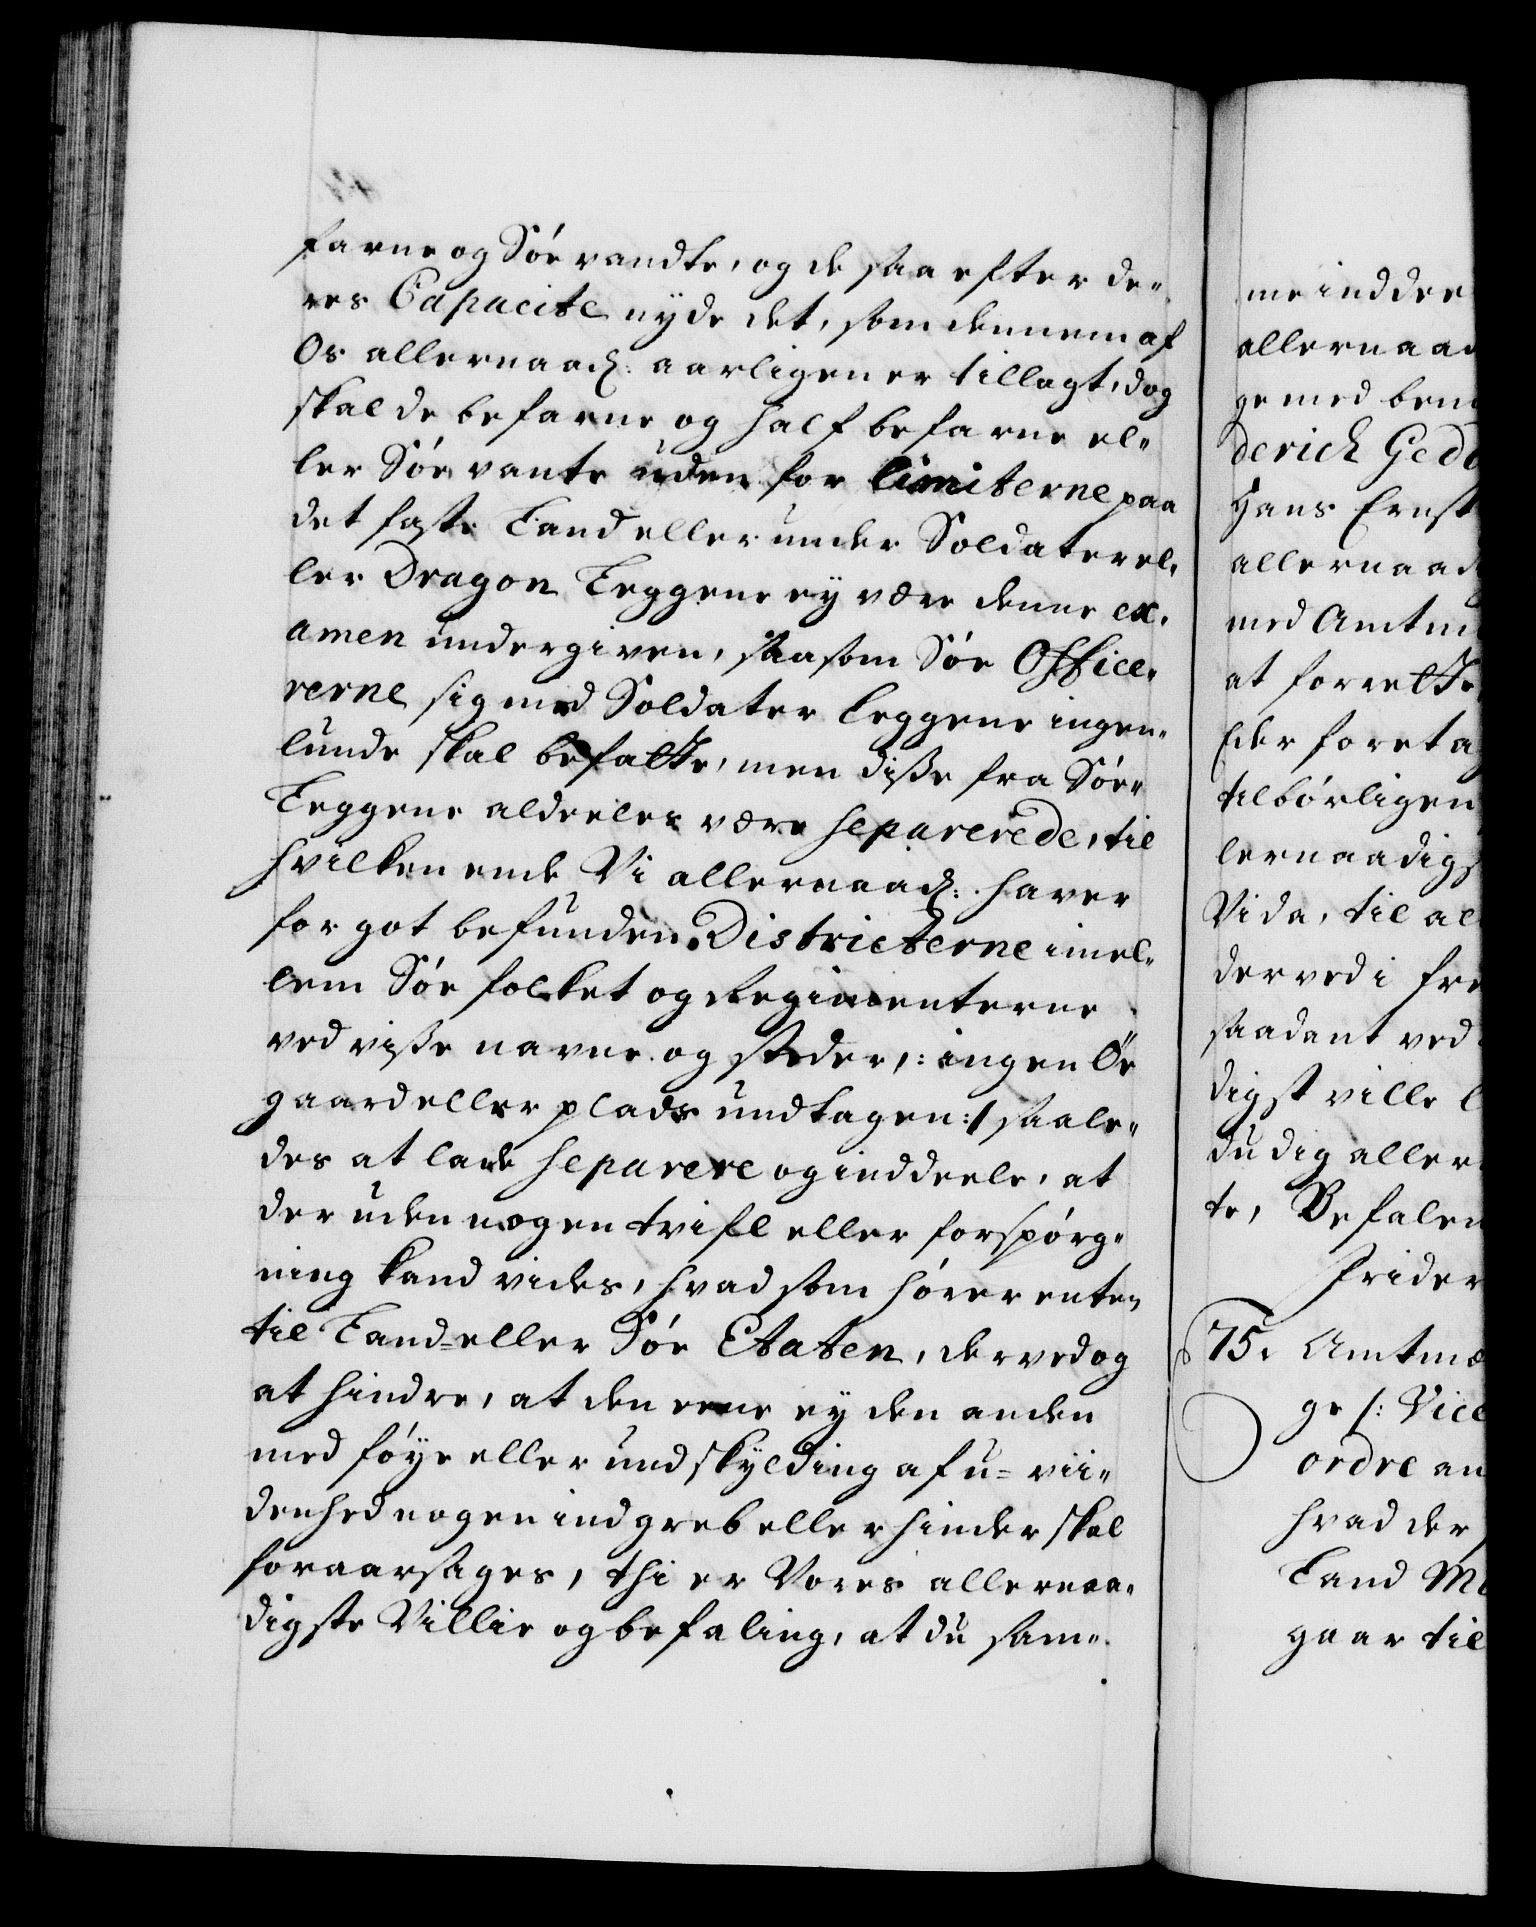 farne og Söe vandte, og de saa efter de„
res Capacite nyde det, som dennem af
Os allernaad: aarligen er tillagt, dog
skal de befarne og half befarne el„
ler Söe vante uden for limiterne paa
det faste Land eller under Soldater el„
ler Dragon Leggene ey være denne ex„
amen undergiven, saasom Söe Office„
rerne sig med Soldater Leggene ingen„
lunde skal befatte, men disse fra Söe„
Leggene aldeeles være separerede, til
hvilken ende Vi allernaad: haver
for got befunden Districterne imel„
lem Söe folket og Regimenterne
ved visse navne og steder, /: ingen Öe
gaard eller plads undtagen :/ saale„
des at lade separere og inddeele, at
der uden nogen tvifl eller forspörg„
ning kand vides, hvad som hörer enten
til Land= eller Söe Etaten, derved og
at hindre, at den eene ey den anden
med föye eller undskylding af u= vii„
denhed nogen indgreb eller hinder skal
foraarsages, thi er Vores allernaa„
digste Villie og befaling, at du sam„
me inddee
allernaad
ge med bem
derich Gedd
Hans Ernst
allernaad
med Amtm
at forrette
Eder foreta
tilbörligen
lernaadigs
Vida, til al
derved i fre
saadant ved
digst ville l
du dig aller
te, Befalen
Frider
75. Amtmæ
ge /: Vice
ordre an
hvad der
Land Mi
gaar til